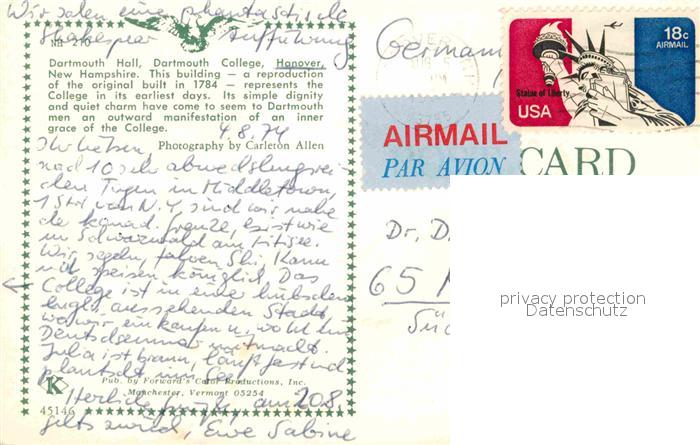 Wir sahen eine phantastische
Shakespear Aufführung
Dartmouth Hall, Dartmouth College, Hanover,
New Hampshire. This building — a reproduction
of the original built in 1784 — represents the
College in its earliest days. Its simple dignity
and quiet charm have come to seem to Dartmouth
men an outward manifestation of an inner
grace of the College.
4.8.74
Photography by Carleton Allen
Ihr Lieben
nach 10 sehr abwechslungsrei-
chen Tagen in Middletown,
1 Std von N.Y. sind wir nahe
de kanad. Grenze, es ist wie
im Schwarzwald am Titisee.
Wir segeln, fahren Ski, Kanu
und speisen königlich. Das
College ist in einer hübschen
engl. aussehenden Stadt,
wo wir einkaufen u.
Deutschseminar mitmacht.
Julia ist braun, läuft fast und
plantscht im See.
Pub. by Forward's Color Productions, Inc.
Manchester, Vermont 05254
K
Herzliche Grüße, am 20.8.
45146
gehts zurück, Eure Sabine
Germany
18c
AIRMAIL
Statue of Liberty
USA
AIRMAIL
PAR AVION
CARD
Dr. D
65
privacy protection
Datenschutz